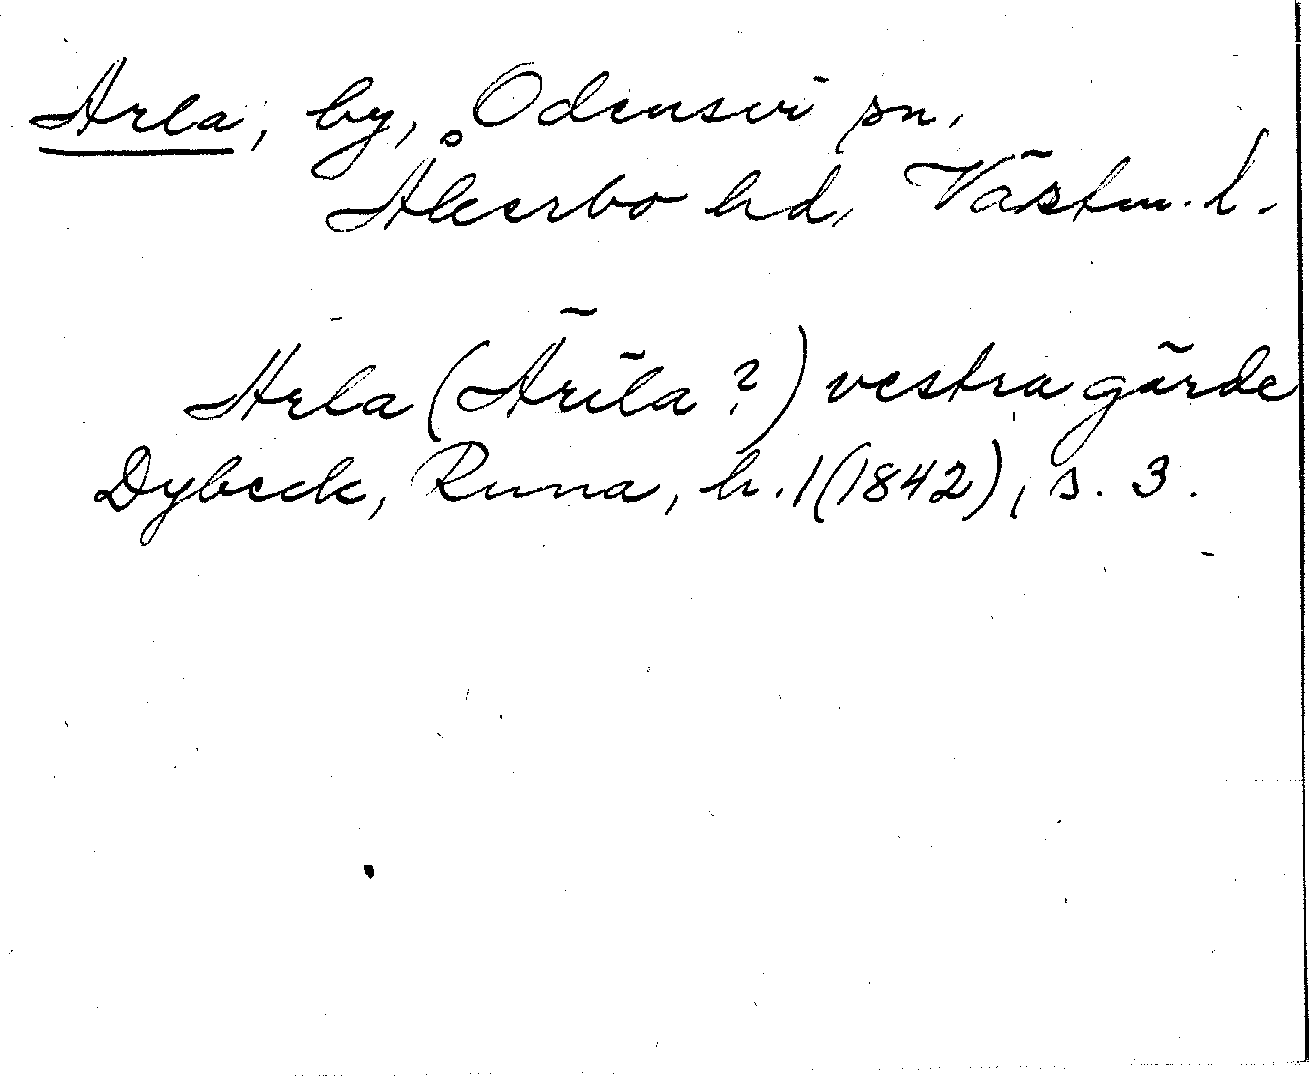 Arla, by, Odensvi sn,
Åkerbo hd, Västm. l.
Arla (Ärila?) vestra gärde
Dybeck, Runa, h. 1 (1842), s. 3.